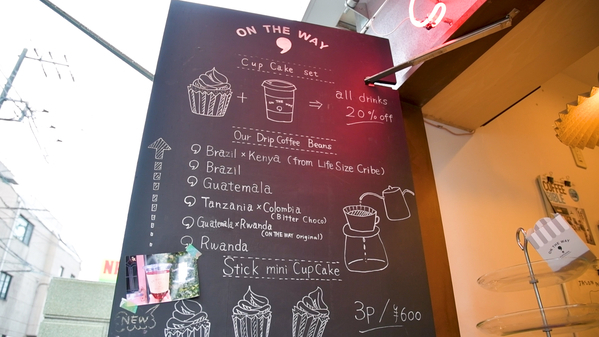 ON THE WAY
Cup Cake set
+
⇒
all drinks
20% off
Our Drip Coffee Beans
Brazil × Kenya (from Life Size Cribe)
Brazil
Guatemala
Tanzania × Colombia
(Bitter Choco)
Guatemala × Rwanda
(ON THE WAY original)
Rwanda
Stick mini CupCake
NEW
3p / ¥600
COFFEE
ON THE WAY